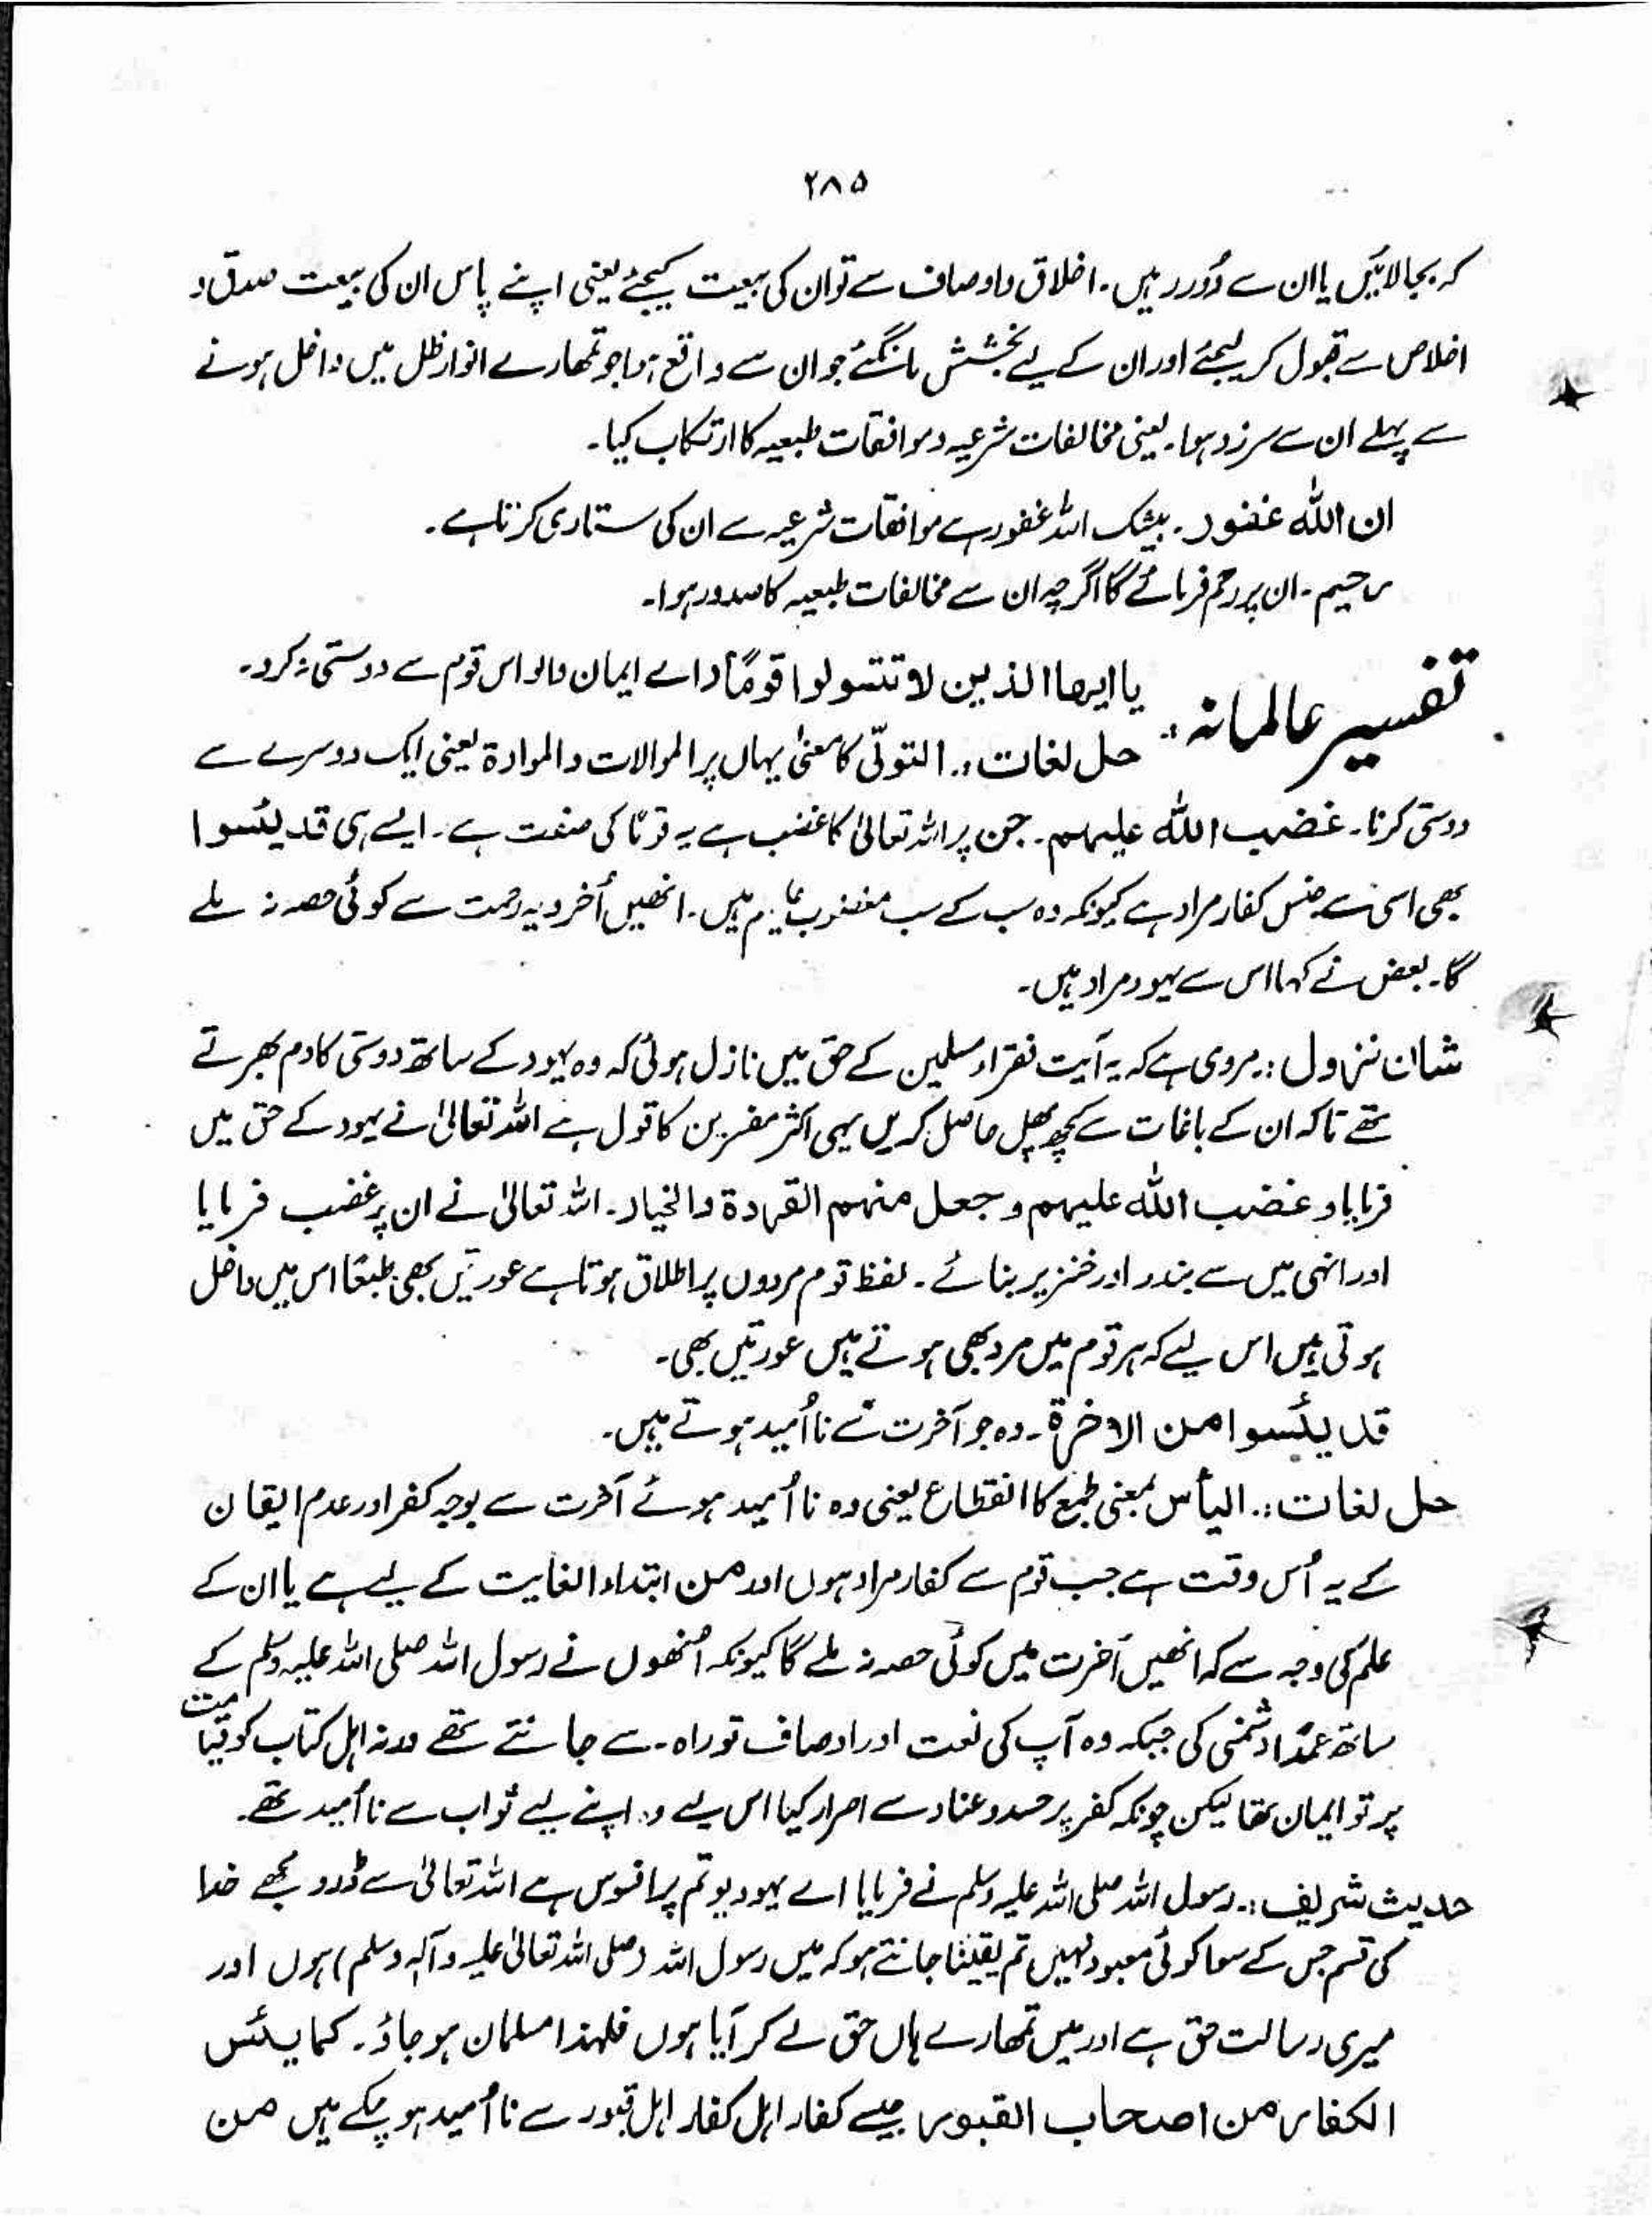 ۲۸۵
کہ بجالائیں یا ان سے دُور رہیں۔ اخلاق و اوصاف سے تو ان کی بیعت کیجئے یعنی اپنے پاس ان کی بیعت صدق و
اخلاص سے قبول کر لیجئے اور ان کے لیے بخشش مانگئے جو ان سے واقع ہوا جو تمھارے انوار ظل میں داخل ہونے
سے پہلے ان سے سرزد ہوا۔ یعنی مخالفات شرعیہ و موافقات طبعیہ کا ارتکاب کیا۔
ان اللّٰہ غفور۔ بیشک اللہ غفور ہے موافقات شرعیہ سے ان کی ستاری کرتا ہے۔
رحیم۔ ان پر رحم فرمائے گا اگرچہ ان سے مخالفات طبعیہ کا صدور ہوا۔
تفسیر عالمانہ:۔ یا ایھا الذین لا تتولوا قومًا و اے ایمان والو اس قوم سے دوستی نہ کرو۔
حل لغات:۔ التولّی کا معنیٰ یہاں پر الموالات والموادۃ یعنی ایک دوسرے سے
دوستی کرنا۔ غضب اللّٰہ علیہم۔ جن پر اللہ تعالیٰ کا غضب ہے یہ قومًا کی صفت ہے۔ ایسے ہی قد یئسوا
بھی اسی سے جنس کفار مراد ہے کیونکہ وہ سب کے سب مغضوب علیہم ہیں۔ انھیں اُخرویہ رحمت سے کوئی حصہ نہ ملے
گا۔ بعض نے کہا اس سے یہود مراد ہیں۔
شان نزول:۔ مروی ہے کہ یہ آیت فقراء مسلمین کے حق میں نازل ہوئی کہ وہ یہود کے ساتھ دوستی کا دم بھرتے
تھے تاکہ ان کے باغات سے کچھ پھل حاصل کریں یہی اکثر مفسرین کا قول ہے اللہ تعالیٰ نے یہود کے حق میں
فرمایا و غضب اللّٰہ علیہم و جعل منہم القردۃ والخیار۔ اللہ تعالیٰ نے ان پر غضب فرمایا
اور انہی میں سے بندر اور خنزیر بنائے۔ لفظ قوم مردوں پر اطلاق ہوتا ہے عورتیں بھی طبعًا اس میں داخل
ہوتی ہیں اس لیے کہ ہر قوم میں مرد بھی ہوتے ہیں عورتیں بھی۔
قد یئسوا من الاٰخرۃ۔ وہ جو آخرت سے نا اُمید ہوتے ہیں۔
حل لغات:۔ الیأس بمعنی طمع کا انقطاع یعنی وہ نا اُمید ہوئے آخرت سے بوجہ کفر اور عدم ایقان
کے یہ اُس وقت ہے جب قوم سے کفار مراد ہوں اور من ابتداء الغایت کے لیے ہے یا ان کے
علم کی وجہ سے کہ انھیں آخرت میں کوئی حصہ نہ ملے گا کیونکہ اُنھوں نے رسول اللہ صلی اللہ علیہ وسلم کے
ساتھ عمدًا دشمنی کی جبکہ وہ آپ کی نعت اور اوصاف توراہ سے جانتے تھے ورنہ اہل کتاب کو قیامت
پر تو ایمان تھا لیکن چونکہ کفر پر حسد و عناد سے اصرار کیا اس لیے وہ اپنے لیے ثواب سے نا اُمید تھے۔
حدیث شریف:۔ رسول اللہ صلی اللہ علیہ وسلم نے فرمایا اے یہودیو تم پر افسوس ہے اللہ تعالیٰ سے ڈرو مجھے خدا
کی قسم جس کے سوا کوئی معبود نہیں تم یقینًا جانتے ہو کہ میں رسول اللہ (صلی اللہ تعالیٰ علیہ وآلہ وسلم) ہوں اور
میری رسالت حق ہے اور میں تمھارے ہاں حق لے کر آیا ہوں فلہٰذا مسلمان ہو جاؤ۔ کما یئس
الکفار من اصحاب القبور جیسے کفار اہل کفار اہل قبور سے نا اُمید ہو چکے ہیں من